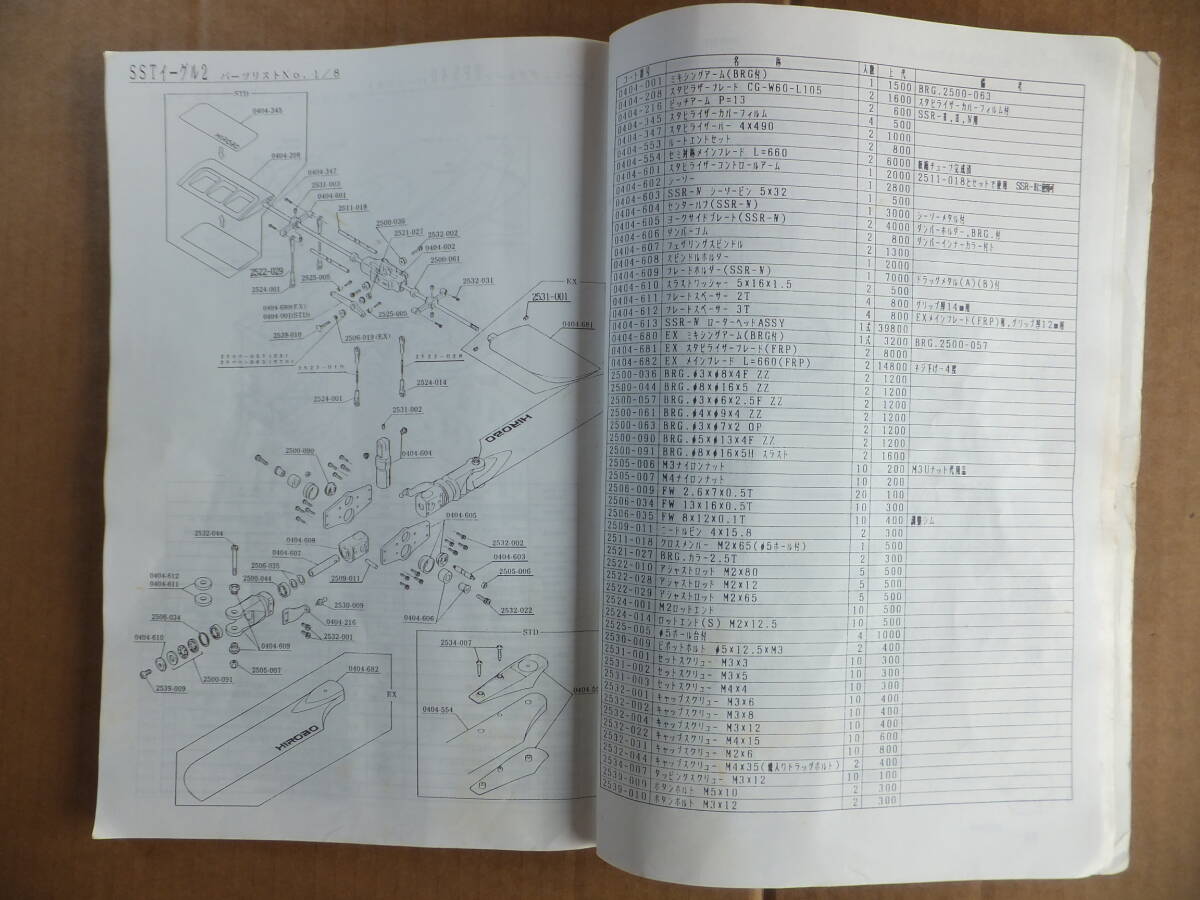 SSTイーグル2 パーツリストNo. 1/8
STD
0404-345
HIROBO
0404-208
0404-347
2531-003
0404-601
2511-018
2500-036
2521-027
2532-002
0404-602
2500-061
2532-031
2522-029
2524-001
2525-005
0404-680(EX)
0404-001(STD)
2539-010
2506-019(EX)
2525-005
EX
2531-001
0404-681
2522-028
2524-014
2524-001
2531-002
0404-604
HIROBO
2500-090
0404-605
2532-002
0404-603
2505-006
2532-022
0404-606
2532-044
0404-608
0404-607
2506-035
2500-044
2509-011
0404-612
0404-611
2530-009
0404-216
2532-001
2506-034
0404-610
0404-609
2505-007
2500-091
2539-009
0404-682
EX
HIROBO
STD
2534-007
0404-554
コード番号 名称 入数 上代 備考
0404-001 ミキシングアーム(BRG付) 1 1500 BRG.2500-063
0404-208 スタビライザーブレード CG-W60-L105 2 1600 スタビライザーカバーフィルム付
0404-216 ピッチアーム P=13 2 600 SSR-Ⅱ,Ⅲ,Ⅳ用
0404-345 スタビライザーカバーフィルム 4 500
0404-347 スタビライザーバー 4×490 2 1000
0404-553 ルートエンドセット 2 800
0404-554 セミ対称メインブレード L=660 2 6000
0404-601 スタビライザーコントロールアーム 1 2000
0404-602 シーソー 1 2800
0404-603 SSR-Ⅳ シーソーピン 5×32 1 500
0404-604 センターハブ(SSR-Ⅳ) 1 3000 シーソーメタル付
0404-605 ヨークサイドプレート(SSR-Ⅳ) 2 4000 ダンパーホルダー,BRG.付
0404-606 ダンパーゴム 2 800 ダンパーインナーカラー付ト
0404-607 フェザリングスピンドル 2 1300
0404-608 スピンドルホルダー 1 2000
0404-609 ブレードホルダー(SSR-Ⅳ) 1 7000 ドラッグメタル(A)(B)付
0404-610 スラストワッシャー 5×16×1.5 2 500
0404-611 ブレードスペーサー 2T 4 800 グリップ厚14㎜用
0404-612 ブレードスペーサー 3T 4 800 EXメインブレード(FRP)用,グリップ厚12㎜用
0404-613 SSR-Ⅳ ローターヘッドASSY 1式 39800
0404-680 EX ミキシングアーム(BRG付) 1式 3200 BRG.2500-057
0404-681 EX スタビライザーブレード(FRP) 2 8000
0404-682 EX メインブレード L=660(FRP) 2 14800
2500-036 BRG.φ3×φ8×4F ZZ 2 1200
2500-044 BRG.φ8×φ16×5 ZZ 2 1200
2500-057 BRG.φ3×φ6×2.5F ZZ 2 1200
2500-061 BRG.φ4×φ9×4 ZZ 2 1200
2500-063 BRG.φ3×φ7×2 OP 2 1200
2500-090 BRG.φ5×φ13×4F ZZ 2 1200
2500-091 BRG.φ8×φ16×5H スラスト 2 1600
2505-006 M3ナイロンナット 10 200 M3Uナット代用品
2505-007 M4ナイロンナット 10 200
2506-009 FW 2.6×7×0.5T 20 100
2506-034 FW 13×16×0.5T 10 300
2506-035 FW 8×12×0.1T 10 400 調整シム
2509-011 ニードルピン 4×15.8 2 300
2511-018 クロスメンバー M2×65(φ5ボール付) 1 500
2521-027 BRG.カラー2.5T 2 300
2522-010 アジャストロッド M2×80 5 500
2522-028 アジャストロッド M2×12 5 500
2522-029 アジャストロッド M2×65 5 500
2524-001 M2ロットエンド 10 500
2524-014 ロットエンド(S) M2×12.5 10 500
2525-005 φ5ボール台付 4 1000
2530-009 ピボットボルト φ5×12.5×M3 2 400
2531-001 セットスクリュー M3×3 10 300
2531-002 セットスクリュー M3×5 10 300
2531-003 セットスクリュー M4×4 10 300
2532-001 キャップスクリュー M3×6 10 400
2532-002 キャップスクリュー M3×8 10 400
2532-004 キャップスクリュー M3×12 10 400
2532-022 キャップスクリュー M4×15 10 600
2532-031 キャップスクリュー M2×6 10 800
2532-044 キャップスクリュー M4×35(首入りドラッグボルト) 2 400
2534-007 タッピングスクリュー M3×12 10 100
2539-009 ボタンボルト M5×10 2 300
2539-010 ボタンボルト M3×12 2 300